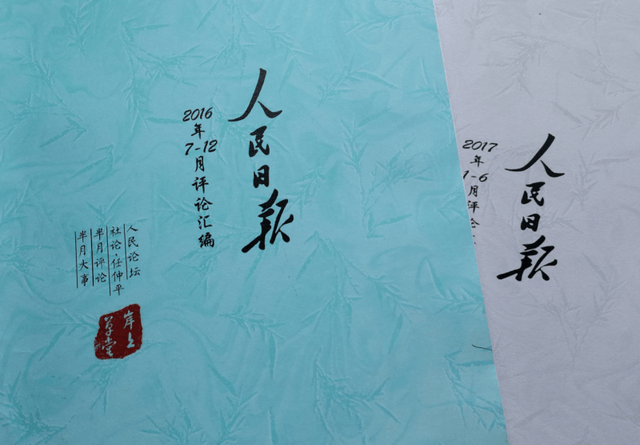 人民日报
2016年7-12月评论汇编
人民论坛
社论·任仲平
半月评论
半月大事
岸上
草堂
人民日报
2017年1-6月评论